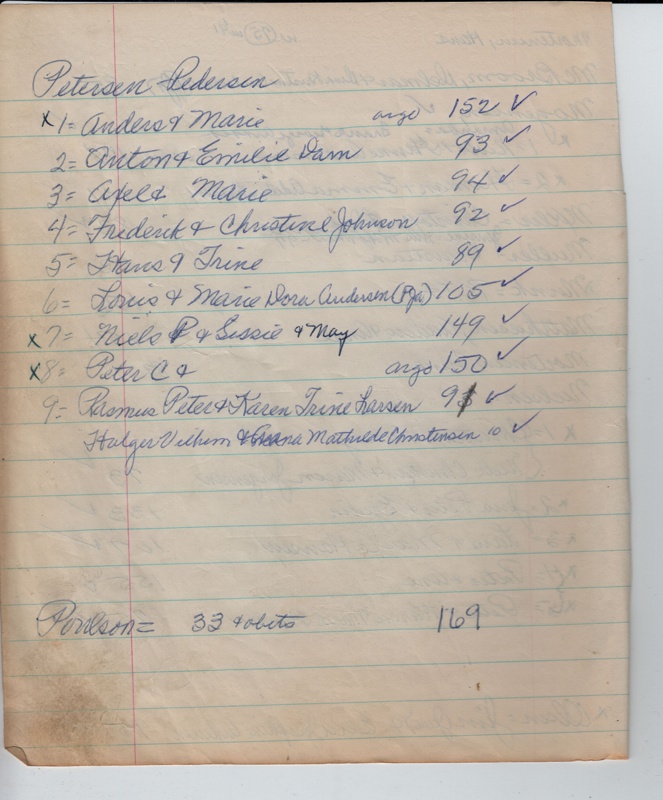 Petersen Pedersen
x 1= Anders & Marie argo 152 ✓
2= Anton & Emilie Dam 93 ✓
3= Axel & Marie 94 ✓
4= Frederick & Christine Johnson 92 ✓
5= Hans & Trine 89 ✓
6= Louis & Marie Dora Andersen 105 ✓
x 7= Niels P & Sessie & May 149 ✓
x 8= Peter C & argo 150 ✓
9= Rasmus Peter & Karen Trine Larsen 91 ✓
Holger Vilhem & Mathilde Christensen 10 ✓
Poulson = 33 & obits 169